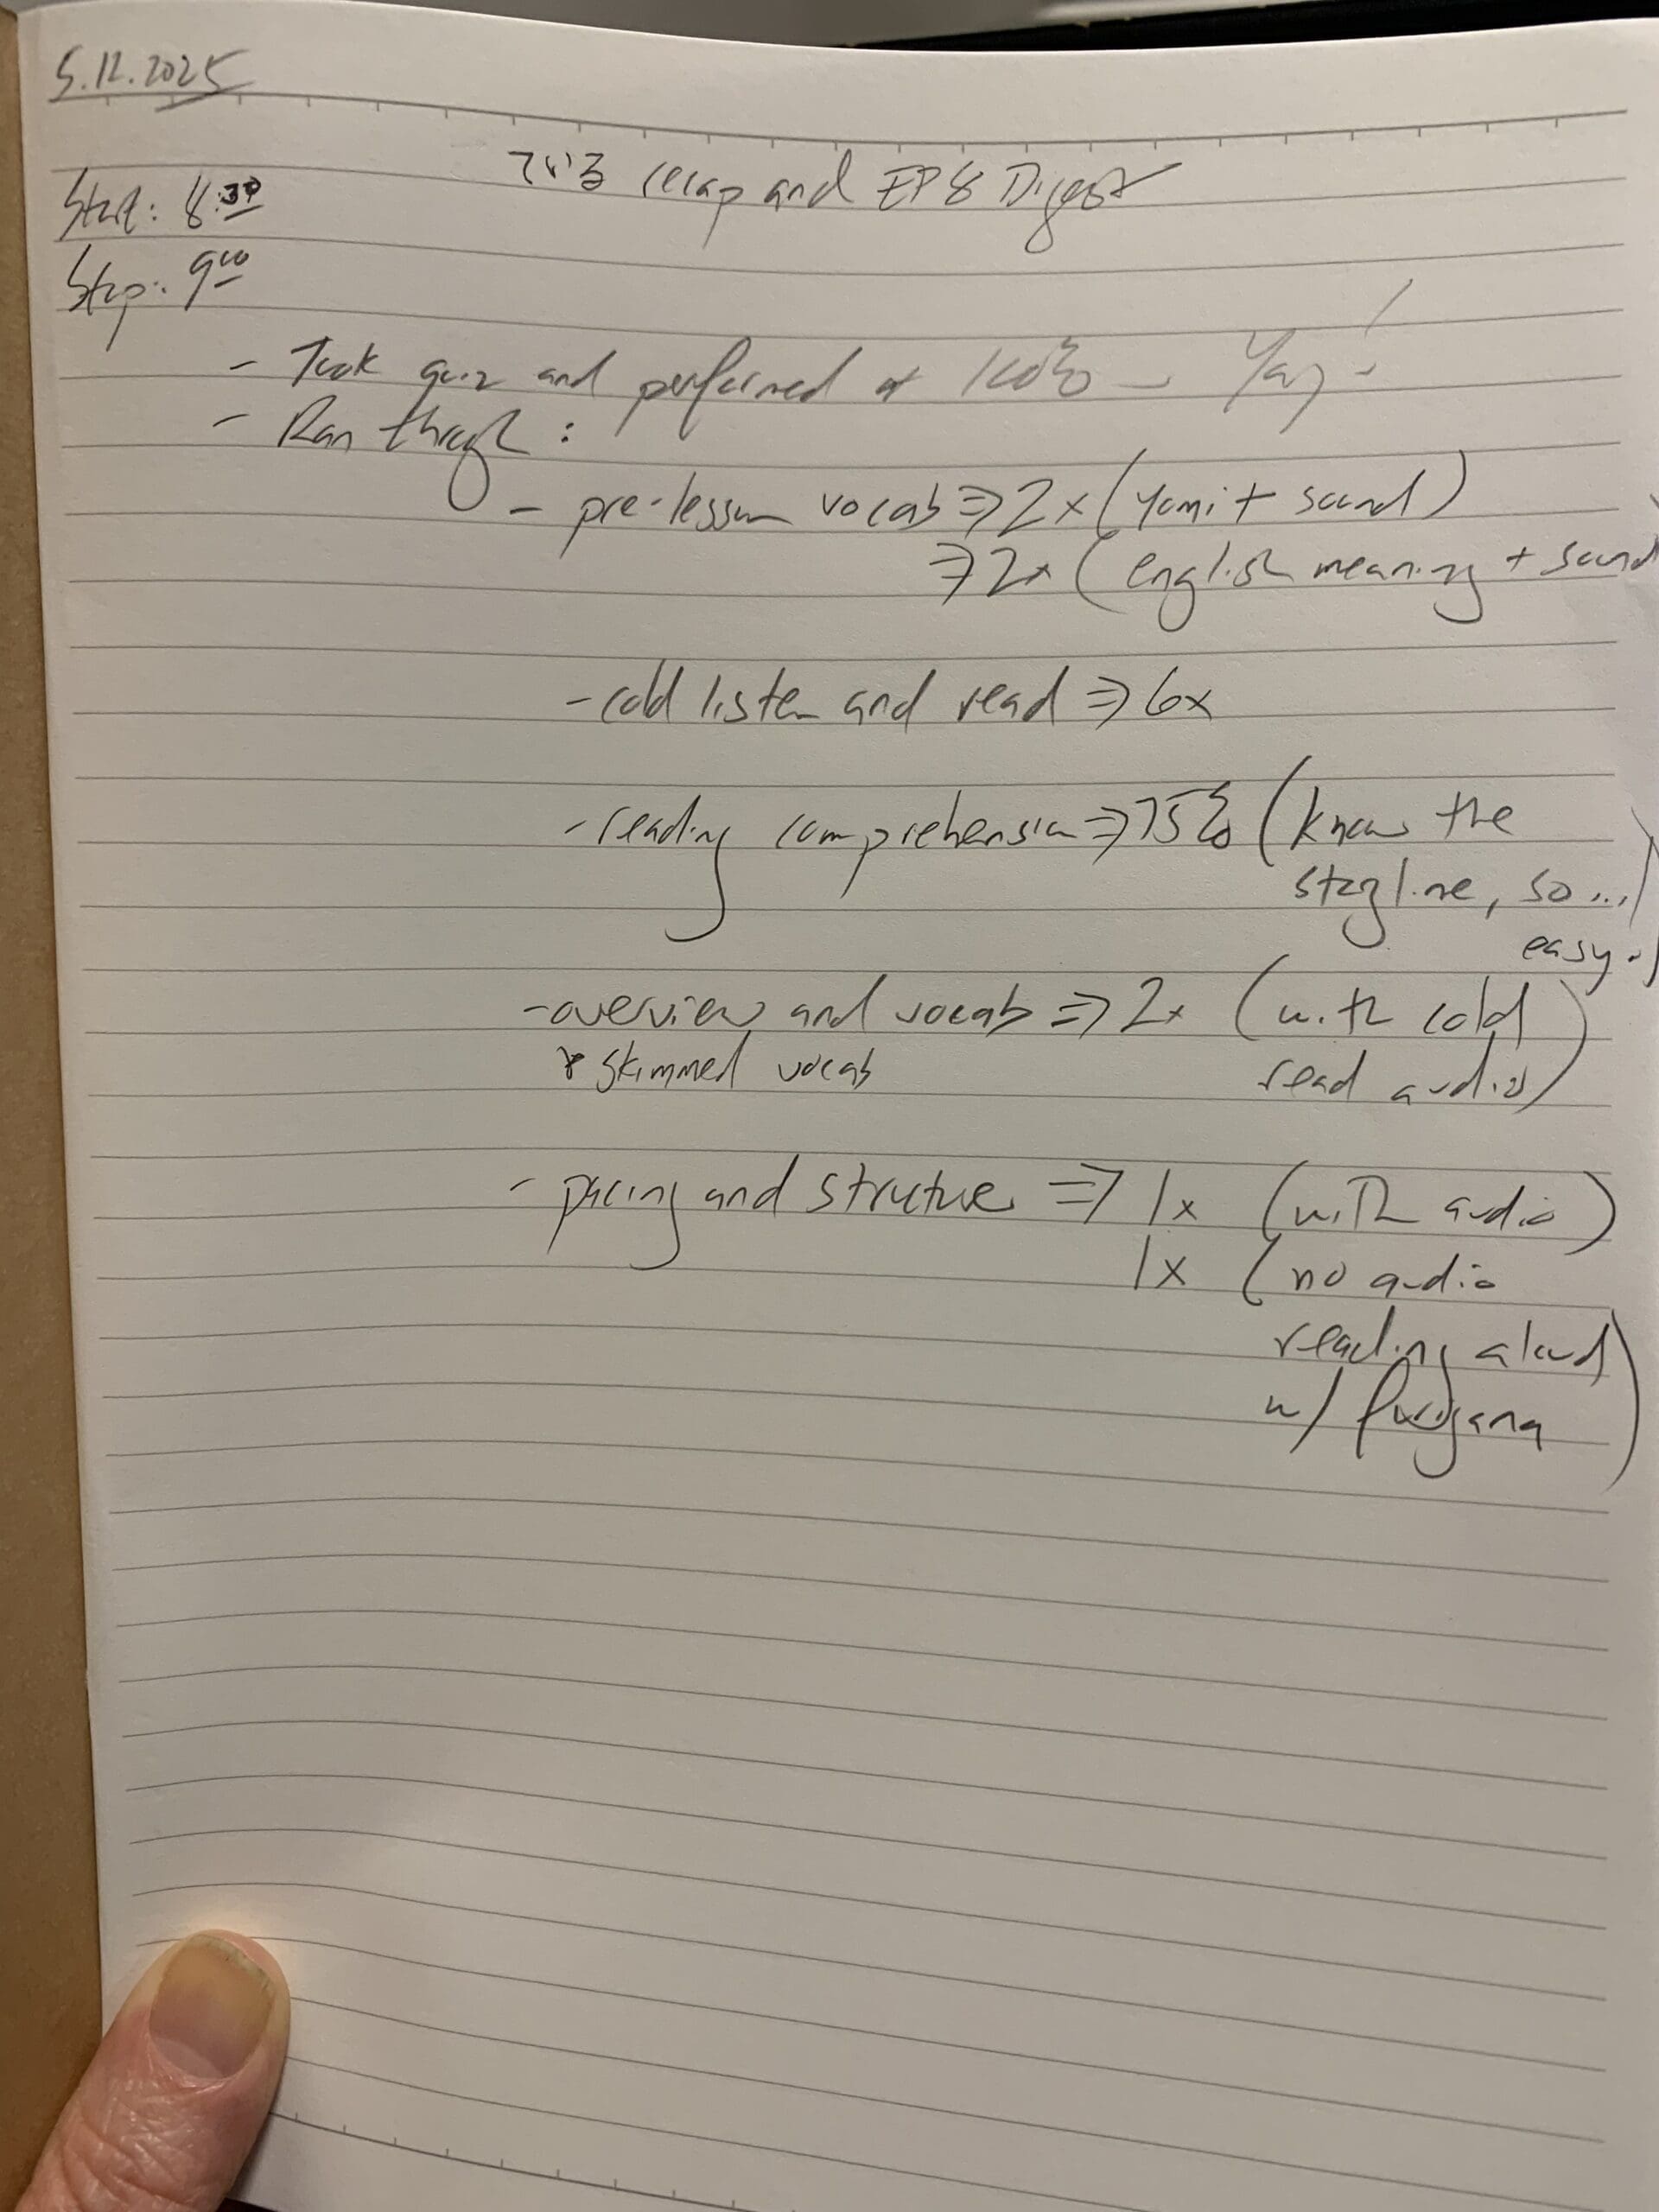 5.12.2025
ている recap and EP 8 Digest
Start: 8:30
Stop: 9:00
- Took quiz and performed at 100% - Yay!
- Ran through:
- pre-lesson vocab ⇒ 2x (yomi + sound)
⇒ 2x (english meaning + sound
- cold listen and read ⇒ 6x
- reading comprehension ⇒ 75% (know the
storyline, so...
easy.)
- overview and vocab ⇒ 2x (with cold
* skimmed vocab read audio)
- pacing and structure ⇒ 1x (with audio)
1x (no audio
reading aloud
w/ furigana)